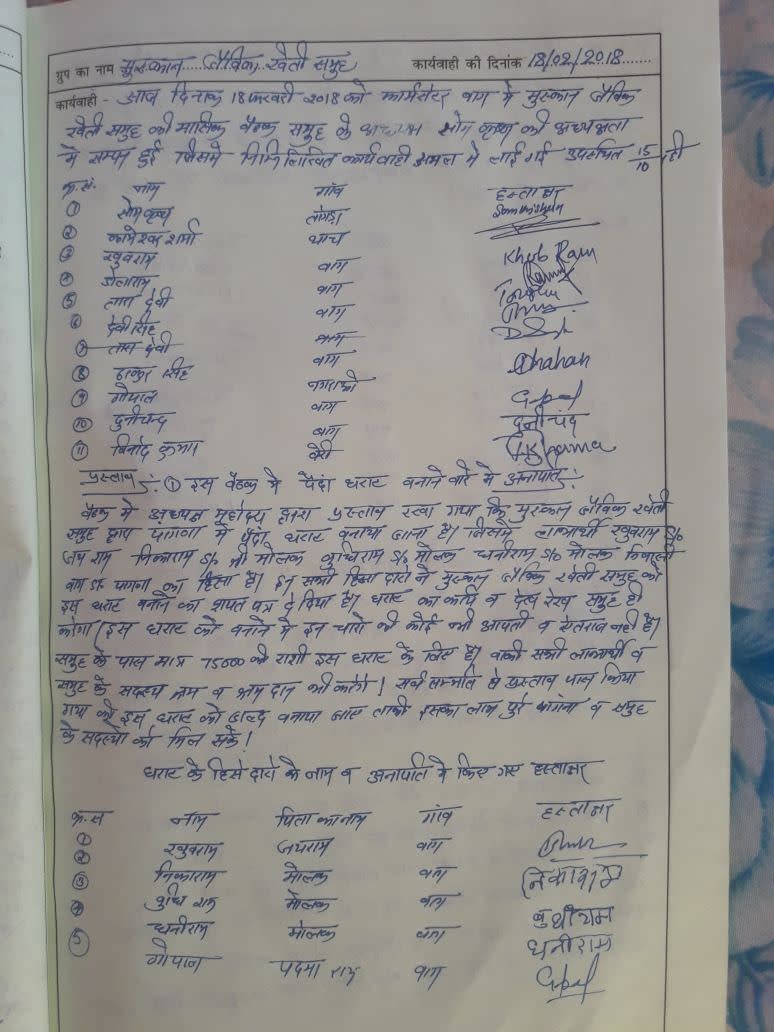 ग्रुप का नाम मुस्कान जैविक खेती समुह कार्यवाही की दिनांक 18/02/2018
कार्यवाही - आज दिनांक 18 फरवरी 2018 को बाग मे मुस्कान जैविक
खेती समुह की मासिक बैठक समुह के अध्यक्ष सोम कृष्ण की अध्यक्षता
मे सम्पन हुई जिसमे निम्नलिखित कार्यवाही अमल मे लाई गई उपस्थित 15/10 रही
क्र.सं. नाम गाँव हस्ताक्षर
① सोम कृष्ण
② कामेश्वर शर्मा थाच
③ खुबराम बाग Khub Ram
④ डोलाराम बाग
⑤ तारा देवी बाग
⑥ देवी सिंह
⑦ तारा देवी बाग
⑧ ठाकुर सिंह
⑨ गोपाल बाग Gpal
⑩ दुनीचन्द बाग दुनीचंद
⑪ विनोद कुमार बेरी Sharma
प्रस्ताव :- ① इस बैठक मे पैदा घराट बनाने बारे मे अनापति :-
बैठक मे अध्यक्ष महोदय द्वारा प्रस्ताव रखा गया कि मुस्कान जैविक खेती
समुह द्वारा पांगणा मे पैदा घराट बनाया जाना है। जिसमे लाभार्थी खुबराम S/o
जय राम निकाराम S/o श्री मोलक बुधिराम S/o मोलक धनीराम S/o मोलक निवासी
बाग डा॰ पांगणा का हिसा है। इन सभी हिसा दारो ने मुस्कान जैविक खेती समुह को
इस घराट बनाने का शपत पत्र दे दिया है। घराट का कार्य व देख रेख समुह ही
करेगा। इस घराट को बनाने मे इन चारो की कोई भी आपती व एतराज नही है।
समुह के पास मात्र 75000 की राशी इस घराट के लिए है। बाकी सभी लाभार्थी व
समुह के सदस्य श्रम व श्रम दान भी करेगे। सर्व सम्मति से प्रस्ताव पास किया
गया की इस घराट को जल्द बनाया जाए ताकी इसका लाभ पुरे पांगणा व समुह
के सदस्यो को मिल सके।
घराट के हिसे दारो के नाम व अनापति मे किए गए हस्ताक्षर
क्र.स नाम पिता का नाम गाँव हस्ताक्षर
① खुबराम जयराम बाग
② निकाराम मोलक बाग निकाराम
③ बुधि राम मोलक बाग बुधीराम
④ धनीराम मोलक बाग धनीराम
⑤ गोपाल पदमा राम बाग Gpal